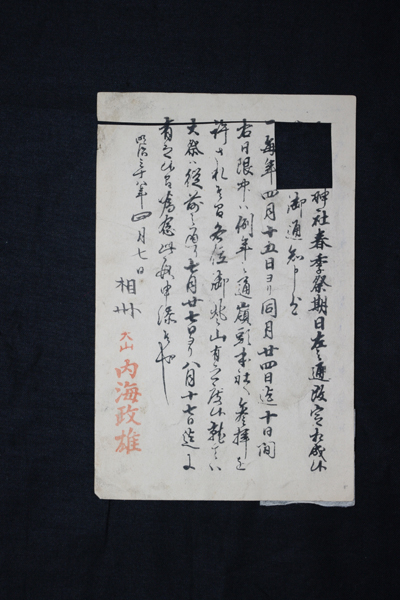 神社春季祭期日左之通改定相成候
御通知申上候
一毎年四月十五日ヨリ同月廿四日迄十日間
右日限中ハ例年之通嶺頭本社へ参拝を
許され候間各位御登山有之度候
大祭ハ従前之通七月廿七日ヨリ八月十七日迄ニ
有之候
此段申添候也
明治三十八年四月七日
相州
大山
内海政雄